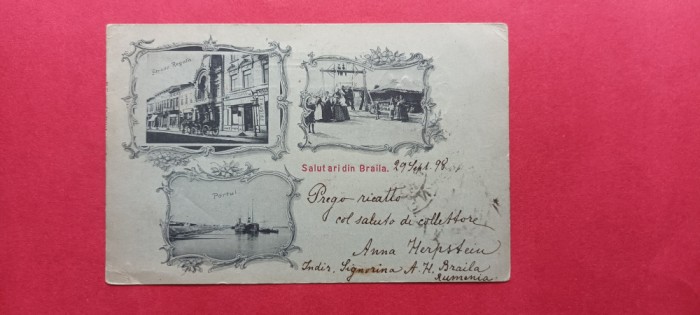 Strada Regala
Salutari din Braila. 29 Sept. 98
Portul
Prego ricatto
col saluto di collettore
Anna Herpstein
Indir, Signorina A. H. Braila
Rumenia